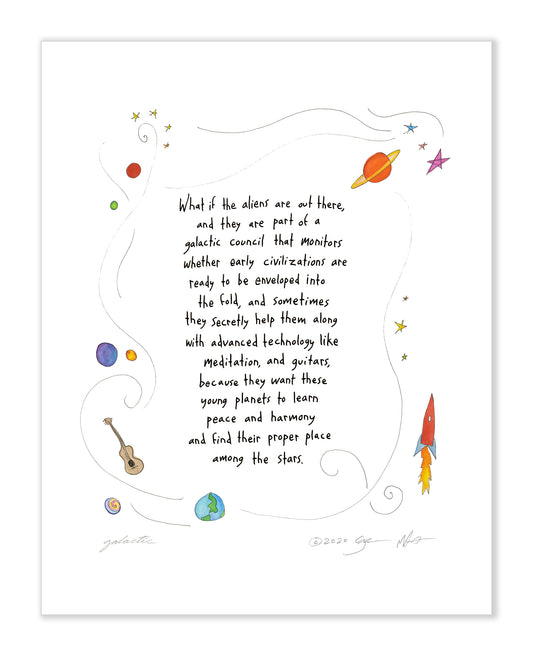 What if the aliens are out there,
and they are part of a
galactic council that monitors
whether early civilizations are
ready to be enveloped into
the fold, and sometimes
they secretly help them along
with advanced technology like
meditation, and guitars,
because they want these
young planets to learn
peace and harmony
and find their proper place
among the stars.
galactic
©2020